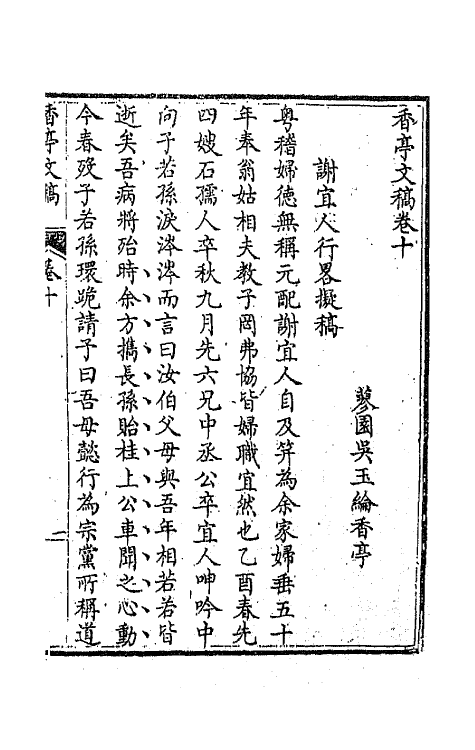 香亭文稿卷十
蓼園吳玉綸香亭
謝宜人行畧擬稿
粵稽婦德無稱元配謝宜人自及笄為余家婦垂五十
年奉翁姑相夫教子罔弗協皆婦職宜然也乙酉春先
四嫂石孺人卒秋九月先六兄中丞公卒宜人呻吟中
向子若孫淚涔涔而言曰汝伯父母與吾年相若若皆
逝矣吾病將殆時余方攜長孫貽桂上公車聞之心動
今春歿子若孫環跪請予曰吾母懿行為宗黨所稱道
香亭文稿
卷十
一